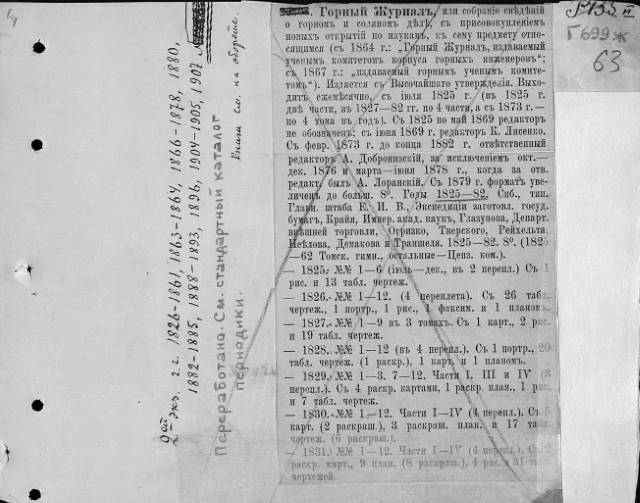 Р133 III
Г 699 ж
63
Горный Журналъ, или собраніе свѣдѣній
о горномъ и соляномъ дѣлѣ, съ присовокупленіемъ
новыхъ открытій по наукамъ, къ сему предмету отно-
сящимся (съ 1864 г.: „Горный Журналъ, издаваемый
ученымъ комитетомъ корпуса горныхъ инженеровъ“;
съ 1867 г.: „издаваемый горнымъ ученымъ комите-
томъ“). Издается съ Высочайшаго утвержденія. Выхо-
дитъ ежемѣсячно, съ іюля 1825 г. (въ 1825 г.
двѣ части, въ 1827—82 гг. по 4 части, а съ 1873 г.—
по 4 тома въ годъ). Съ 1825 по май 1869 редакторъ
не обозначенъ; съ іюня 1869 г. редакторъ К. Лисенко.
Съ февр. 1873 г. до конца 1882 г. отвѣтственный
редакторъ А. Добронизскій, за исключеніемъ окт.—
дек. 1876 и марта—іюня 1878 г., когда за отв.
редакт. былъ А. Лоранскій. Съ 1879 г. форматъ уве-
личенъ до больш. 8°. Годы 1825—82. Спб., тип.
Главн. штаба Е. И. В., Экспедиціи заготовл. госуд.
бумагъ, Крайя, Импер. акад. наукъ, Глазунова, Департ.
внѣшней торговли, Огризко, Тверского, Рейхельта,
Неѣлова, Демакова и Траншеля. 1825—82. 8°. (1825
—62 Томск. гимн., остальные—Ценз. ком.).
— 1825. №№ 1—6 (іюль—дек., въ 2 перепл.) Съ 1
рис. и 13 табл. чертеж.
— 1826. №№ 1—12. (4 переплета). Съ 26 табл.
чертеж., 1 портр., 1 рис., 1 факсим. и 1 планомъ.
— 1827. №№ 1—9 въ 3 томахъ. Съ 1 карт., 2 рис.
и 19 табл. чертеж.
— 1828. №№ 1—12 (въ 4 перепл.). Съ 1 портр., 20
табл. чертеж. (1 раскр.), 1 карт. и 1 планомъ.
— 1829. №№ 1—3. 7—12. Части I, III и IV (3
перепл.). Съ 4 раскр. картами, 1 раскр. план., 1 рис.
и 7 табл. чертеж.
— 1830. №№ 1—12. Части I—IV (4 перепл.). Съ 5
карт. (2 раскраш.), 3 раскраш. план. и 17 табл.
чертеж. (6 раскраш.).
— 1831. №№ 1—12. Части I—IV (4 перепл.). Съ 2
раскр. карт., 9 план. (8 раскраш.), 4 рис. и 31 табл.
чертежей.
2ой экз. г.г. 1826-1861, 1863-1864, 1866-1878, 1880,
1882-1885, 1888-1893, 1896, 1904-1905, 1907
Переработано. См. стандартный каталог
периодики.
Книги см. на обороте.